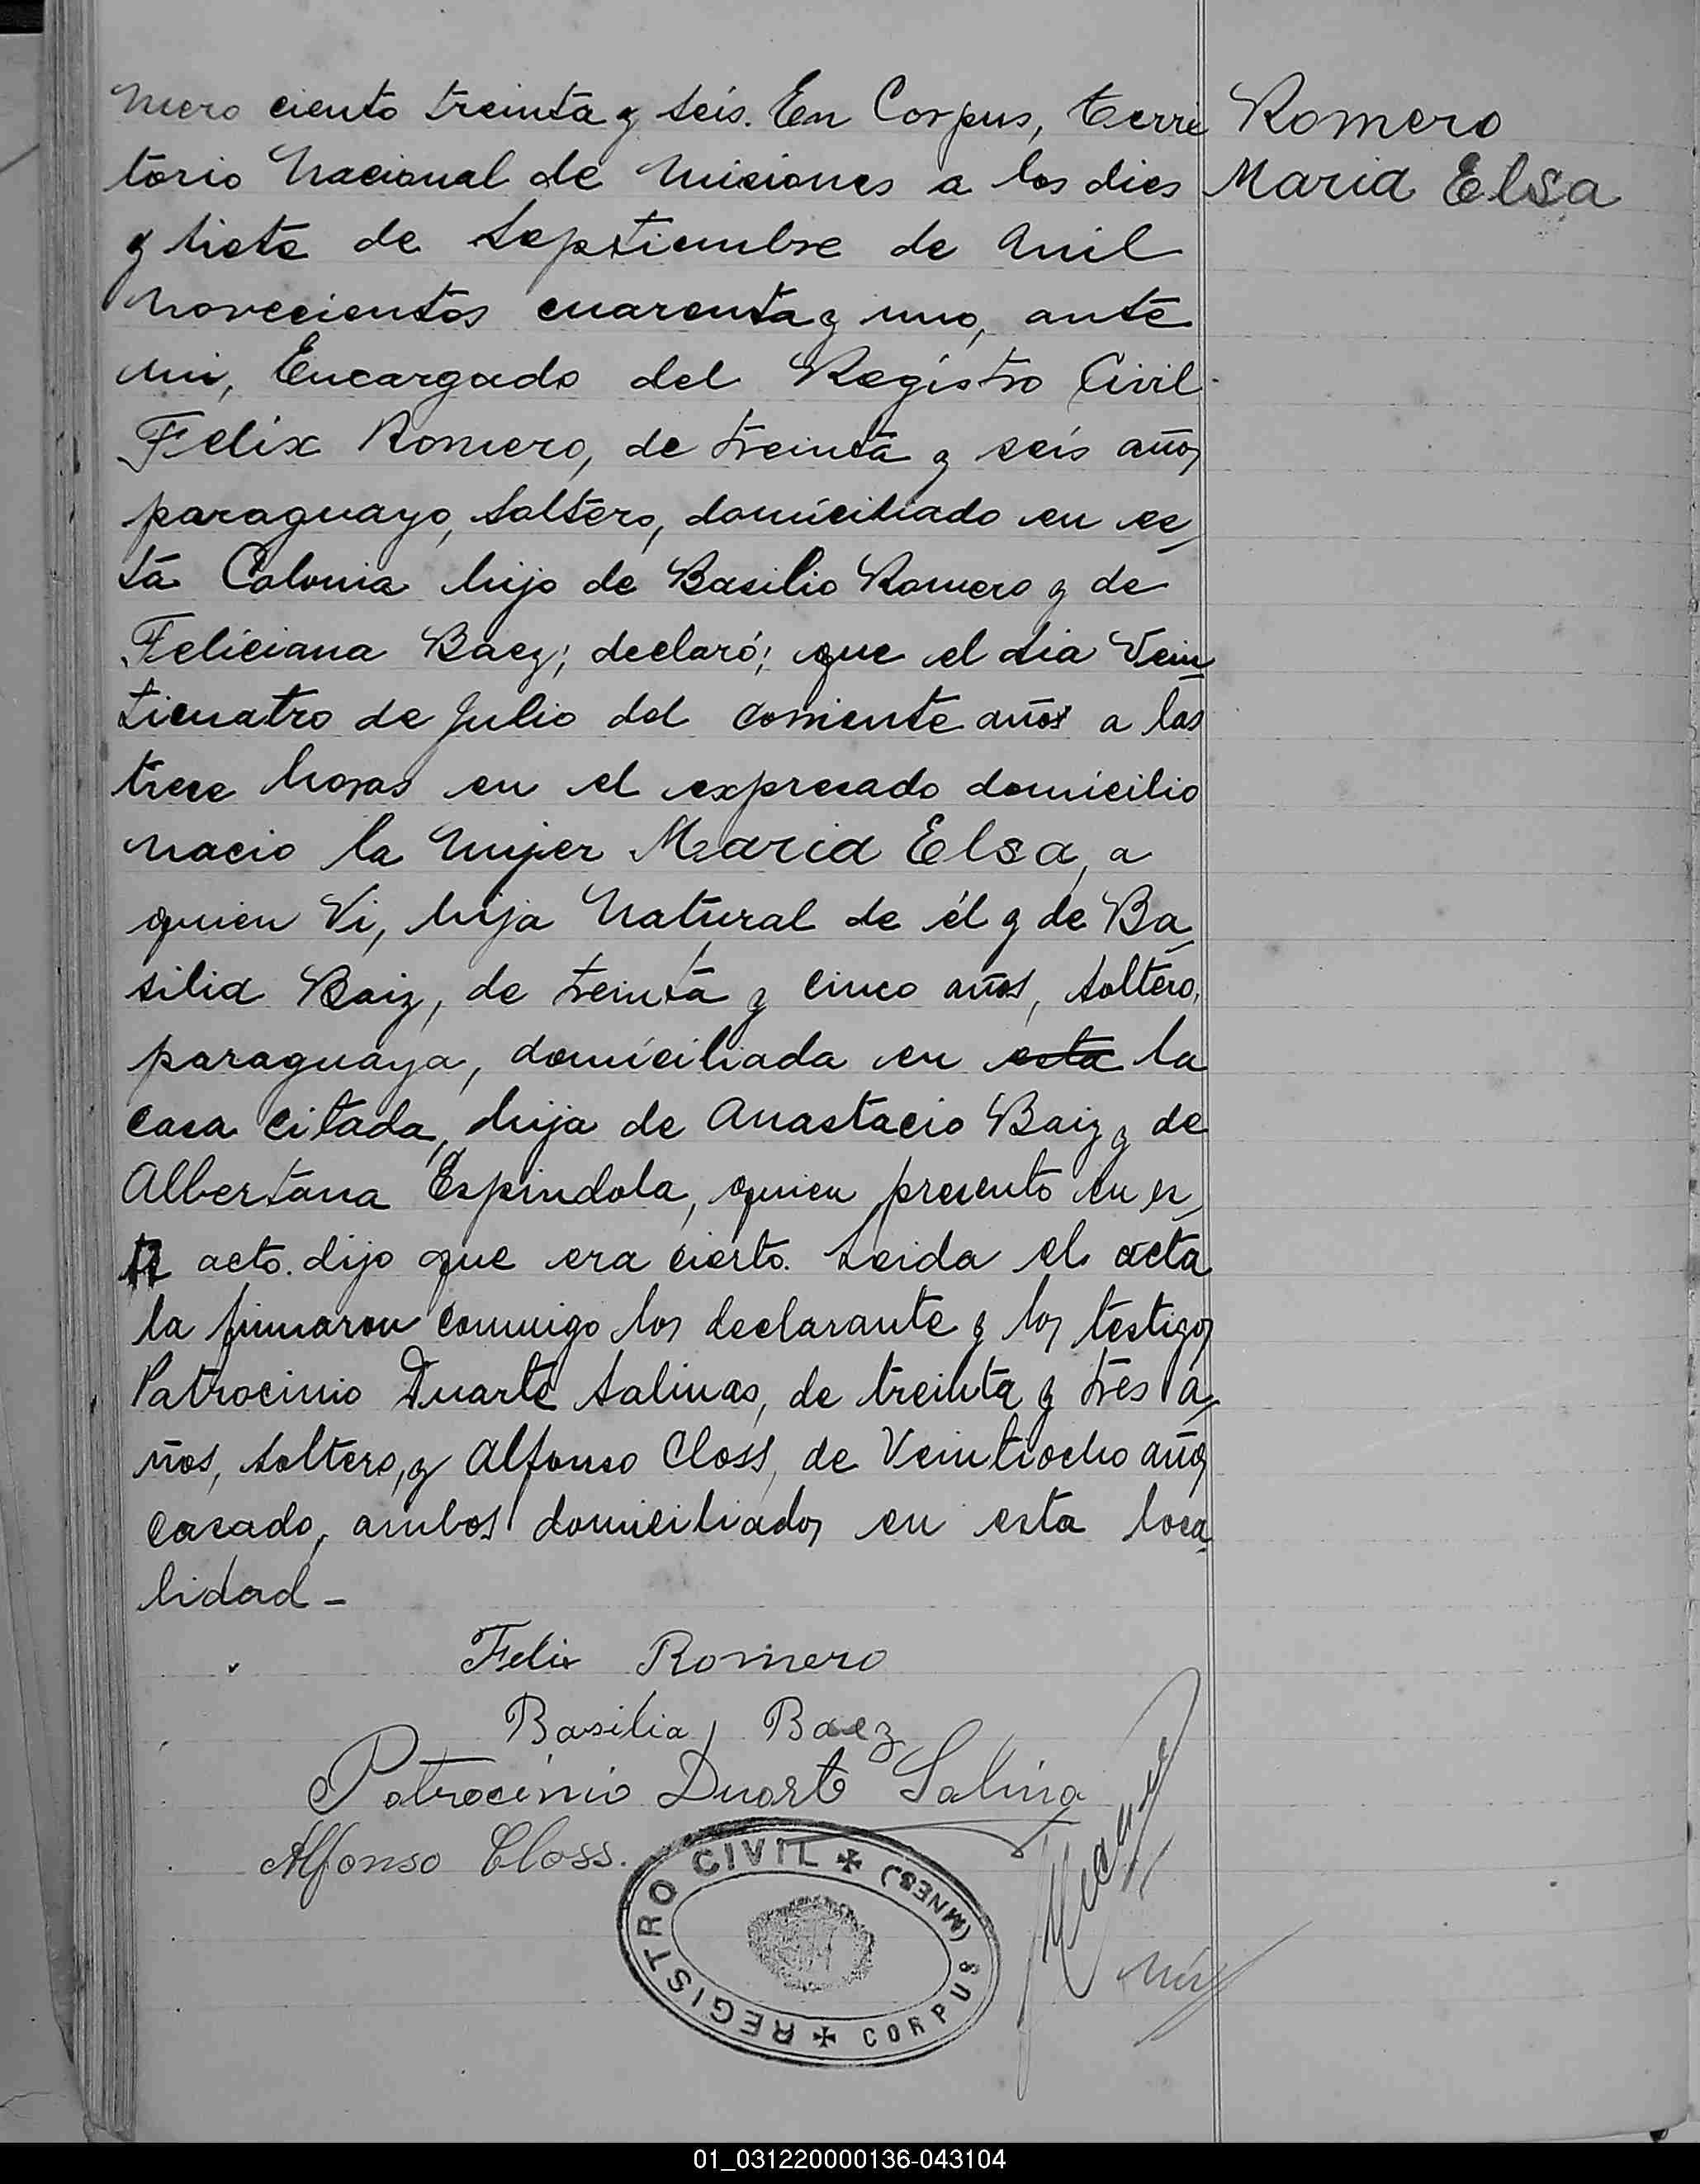 mero ciento treinta y seis. En Corpus, terri
torio Nacional de Miciones a los dies
y siete de Septiembre de mil
novecientos cuarenta y uno, ante
mi, Encargado del Registro Civil.
Felix Romero, de treinta y seis años
paraguayo, soltero, domiciliado en es
ta Colonia hijo de Basilio Romero y de
Feliciana Baez; declaró; que el dia Vein
ticuatro de Julio del corriente años a las
trece horas en el expresado domicilio
nacio la mujer Maria Elsa, a
quien Vi, hija natural de él y de Ba
silia Baiz, de treinta y cinco años, soltero,
paraguaya, domiciliada en esta la
casa citada, hija de Anastacio Baiz y de
Albertana Espindola, quien presento en es
acto. dijo que era cierto. Leida el acta
la firmaron conmigo los declarante y los testigos
Patrocinio Duarte Salinas, de treinta y tres a
ños, soltero, y Alfonso Closs, de Veintiocho años
casado, ambos domiciliados en esta loca
lidad -
Romero
Maria Elsa
Felix Romero
Basilia Baez
Patrocinio Duarte Salina
Alfonso Closs.
REGISTRO CIVIL ✠ (MNES) CORPUS ✠
01_031220000136-043104